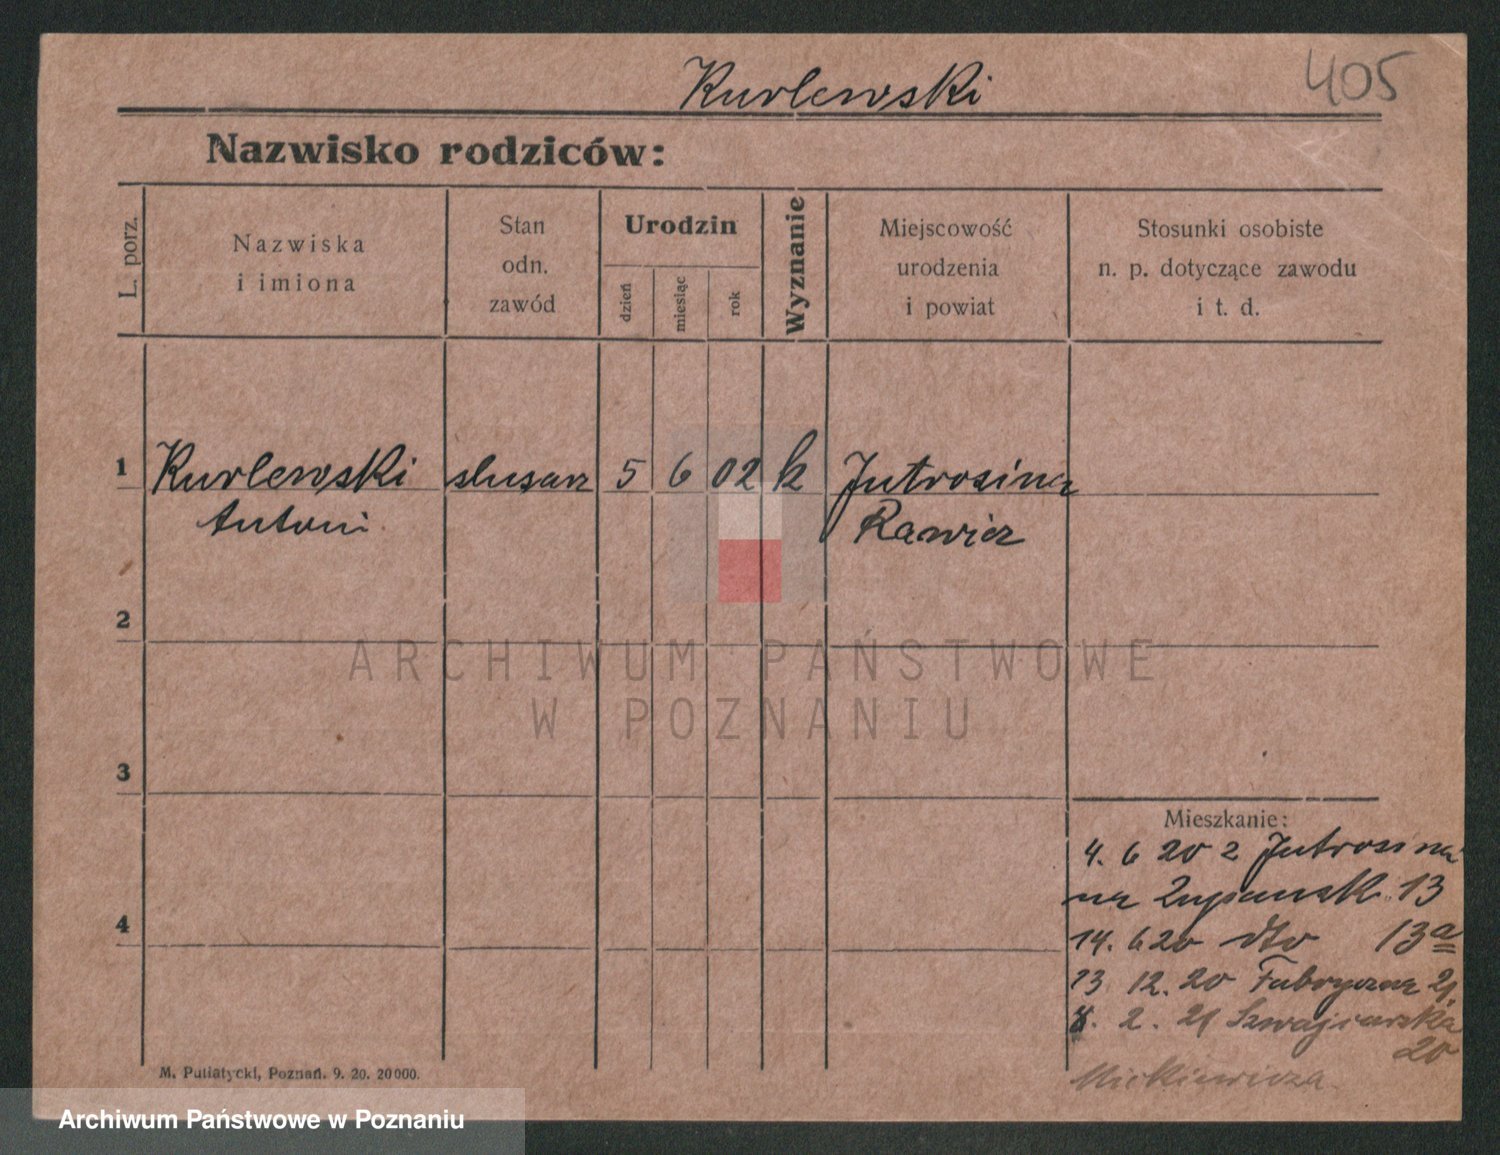 Kurlewski
405
Nazwisko rodziców:
L. porz.
Nazwiska
i imiona
Stan
odn.
zawód
Urodzin
dzień
miesiąc
rok
Wyznanie
Miejscowość
urodzenia
i powiat
Stosunki osobiste
n. p. dotyczące zawodu
i t. d.
1 Kurlewski slusarz 5 6 02 k Jutrosina
Antoni Rawicz
2
ARCHIWUM PAŃSTWOWE
W POZNANIU
3
Mieszkanie:
4. 6 20 z Jutrosina
na 13
4
14. 6 20 dto 13a
13 12. 20 Fabryczna 21.
8. 2. 21 Szwajcarska
20
Mickiewicza
M. Putiatycki, Poznań. 9. 20. 20000.
Archiwum Państwowe w Poznaniu